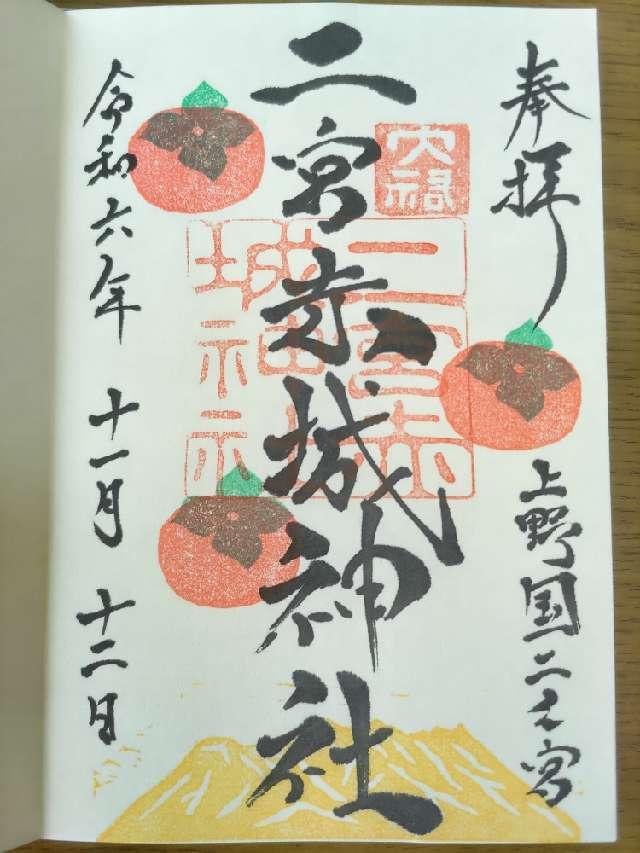 奉拝
上野国二之宮
二宮赤城神社
大胡
二宮赤城神社
令和六年 十一月 十二日